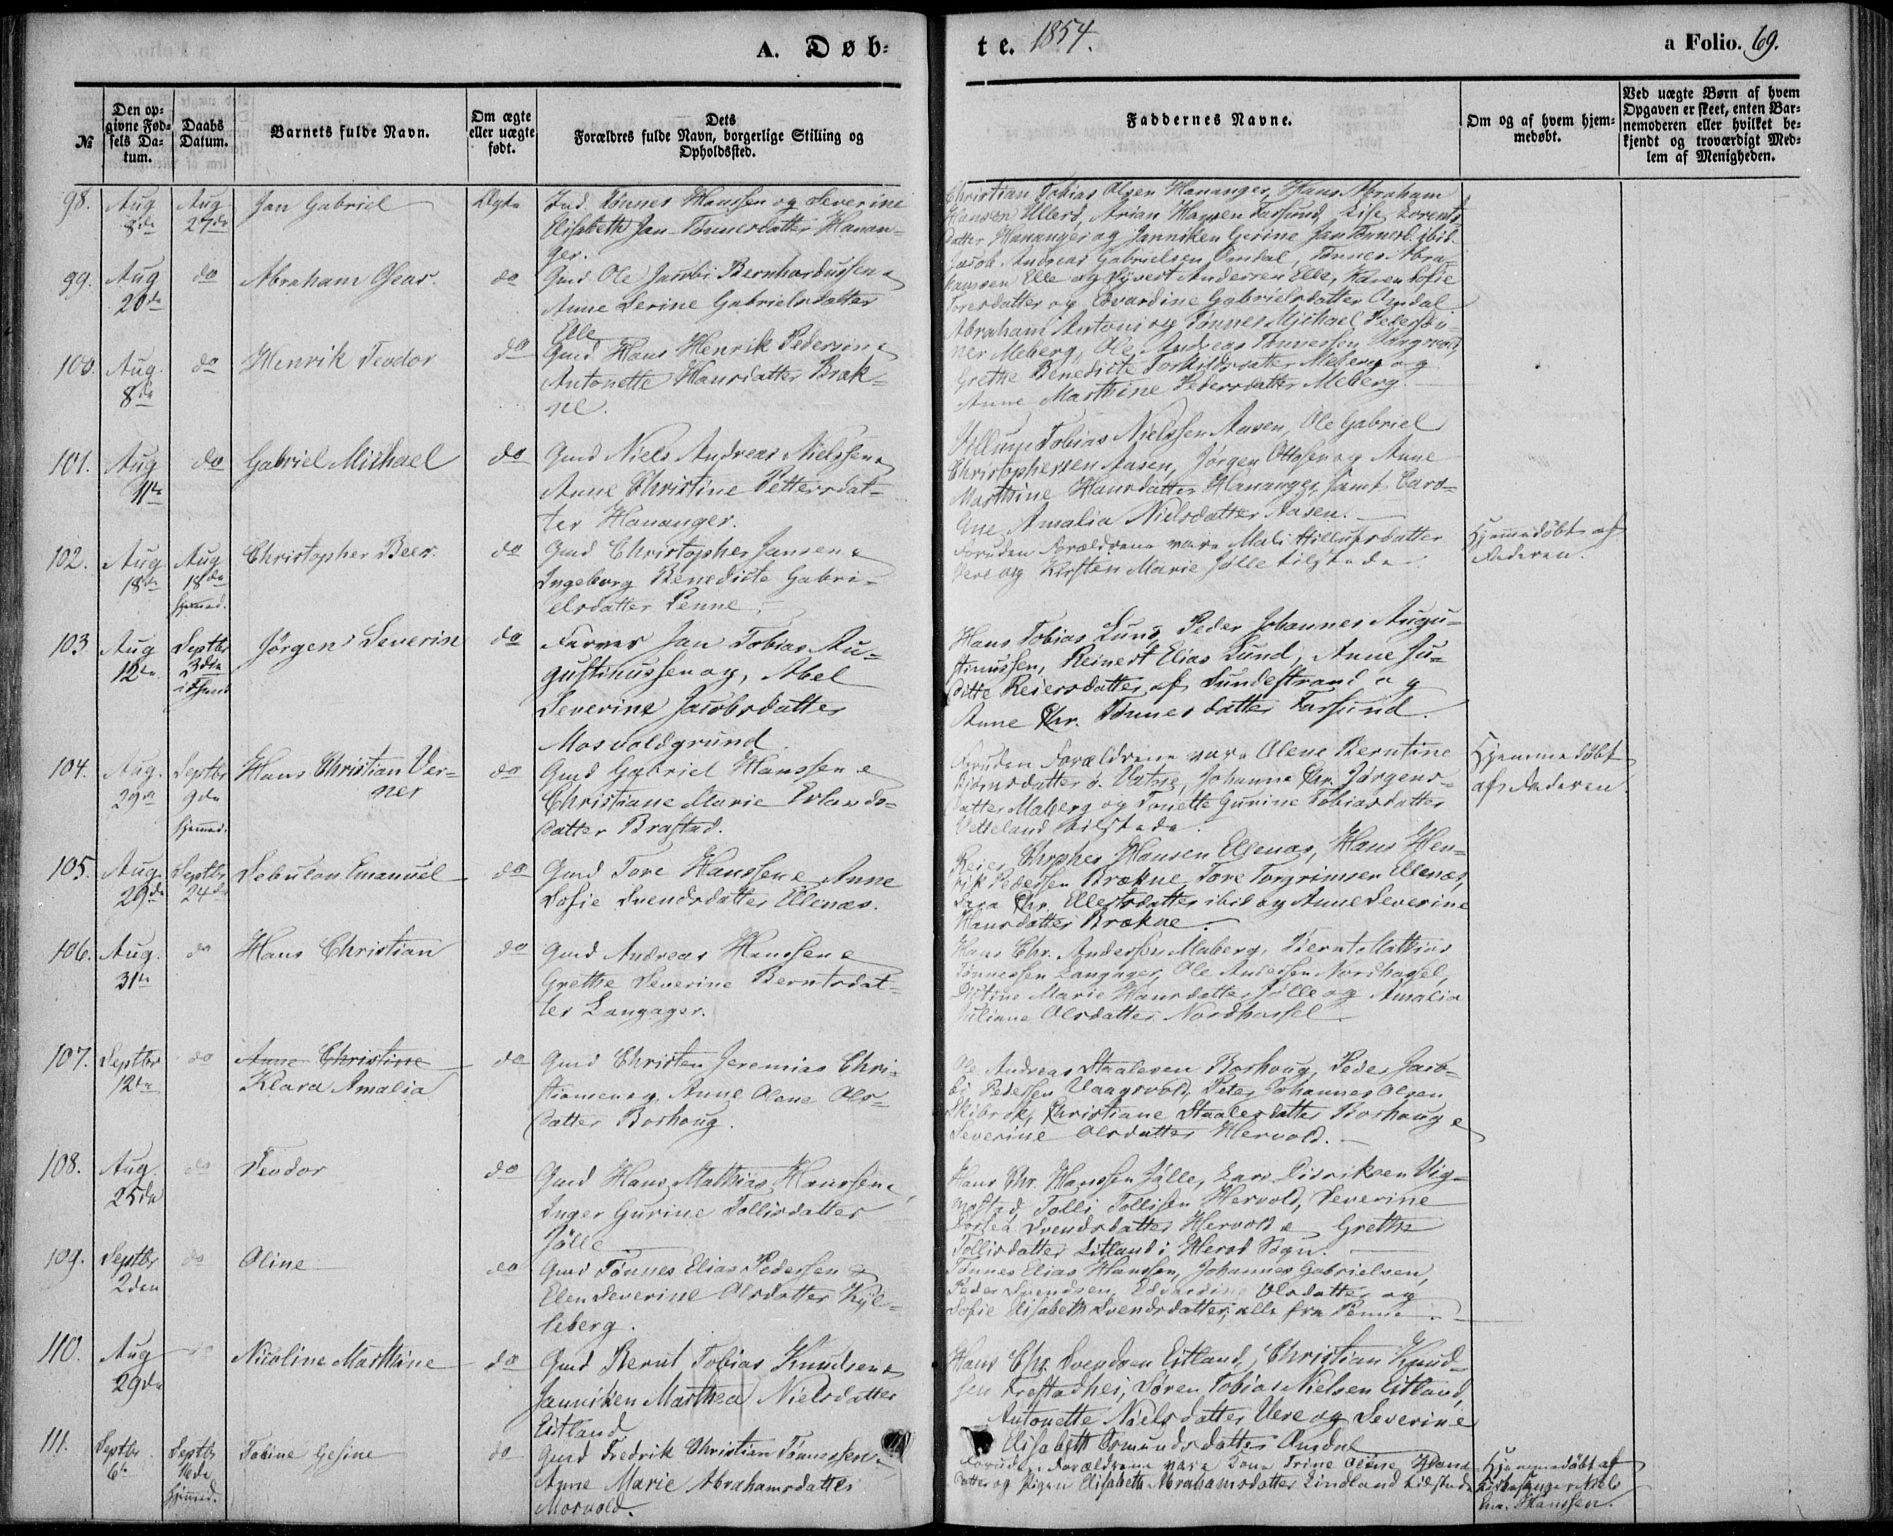 A. Døb-
te. 1854.
a Folio. 69.
№
Den opgivne Fødsels Datum.
Daabs Datum.
Barnets fulde Navn.
Om ægte eller uægte født.
Dets Forældres fulde Navn, borgerlige Stilling og Opholdssted.
Faddernes Navne.
Om og af hvem hjemmedøbt.
Ved uægte Børn af hvem Opgaven er skeet, enten Barnemoderen eller hvilket bekjendt og troværdigt Medlem af Menigheden.
98. Aug 8de Aug 27de Jan Gabriel Ægte
Tønnes Hanssen og Severine
Elisabeth Jan Tønnesdatter Hanan-
ger.
Christian Tobias Olsen Hananger, Hans Abraham
Hansen Ullerø, Arian Hansen Farsund, Lise Lorents
datter Hananger og Janniken Gerine Jan Tønnesd. ibid.
99. Aug 20de do Abraham do
Gmd Ole Jacobi Bernhardussen &
Anne Serine Gabrielsdatter
Elle
Jacob Andreas Gabrielsen Omdal, Tønnes Abra-
hamsen Elle og Syvert Andersen Elle, Karen Sofie
Toresdatter og Edvardine Gabrielsdatter Omdal
100. Aug. 8de do Henrik Teodor do
Gmd Hans Henrik Pedersen &
Antonette Hansdatter Bræk-
ne.
Abraham Antoni og Tønnes Michael Peders
Meberg, Ole Andreas
Grethe Benedicte Torkildsdatter Meberg og
Anne Marthine Pedersdatter Meberg.
101. Aug 11te do Gabriel Michael do
Gmd Niels Andreas Nielssen &
Anne Christine Pettersdat-
ter Hananger.
Tobias Nielssen Aasen, Ole Gabriel
Christophersen Aasen, Jørgen Ottosen og Anne
Marthine Hansdatter Hananger, samt Caro-
line Amalia Nielsdatter Aasen.
102. Aug 18de Aug 18de hjemmed. Christopher Beer. do
Gmd Christopher Jansen &
Ingeborg Benedicte Gabri-
elsdatter Penne.
Foruden Forældrene vare Mali Hillufsdatter
Vere og Kirsten Marie Jølle tilstede.
Hjemmedøbt af
Faderen.
103 Aug 12te Septbr 3die Jørgen Severin do
Farver Jan Tobias Au-
gustinussen og Abel
Severine Jacobsdatter
Mosvoldgrund.
Hans Tobias Lund, Peder Johannes Augu-
stinussen, Reinert Elias Lund, Anne Ju-
ditte Reiersdatter af Sundestrand og
Anne Chr. Tønnesdatter Farsund.
104. Aug. 29de Septbr 9de hjemmed. Hans Christian Ver-
ner do
Gmd Gabriel Hanssen &
Christiane Marie Erlands-
datter Brastad.
Foruden Forældrene vare Olene Berntine
Bjørnsdatter ø. Vatne, Johanne Chr. Jørgens-
datter Maberg og Tonette Gurine Tobiasdatter
Vetteland tilstede.
Hjemmedøbt
af Faderen.
105. Aug. 29de Septbr 24de Sebulon Emanuel do
Gmd Tore Hanssen & Anne
Sofie Svendsdatter Ellenæs.
Reier Chrpher Hansen Ellenæs, Hans Hen-
rik Pedersen Brækne, Tore Torgrimsen Ellenæs,
Sara Chr. Ellefsdatter ibid og Anne Severine
Hansdatter Brækne.
106. Aug. 31te do Hans Christian do
Gmd Andreas Hanssen &
Grethe Severine Berntsdat-
ter Langager.
Hans Chr. Anderssen Maberg, Bernt Mathias
Tønnessen Langager, Ole Anderssen Nordhassel,
Marie Hansdatter Jølle og Amalia
Juliane Olsdatter Nordhassel
107. Septbr 12te do Anne Christine
Klara Amalia do
Gmd Christen Jeremias Chri-
stiansen og Anne Olene Ols-
datter Borhoug.
Ole Andreas Staalesen Borhoug, Peder Jaco-
bi Pedersen Vaagsvold, Peter Johannes Olsen
Skibrok, Christiane Staalesdatter Borhoug &
Severine Olsdatter Hervold.
108. Aug. 25de do Teodor do
Gmd Hans Mathias Hanssen &
Inger Gurine Tollisdatter
Jølle
Hans Chr. Hanssen Jølle, Lars Didriksen Vig-
mostad, Tolli Tollisen Hervold, Severine
Dortea Svendsdatter Hervold & Grethe
Tollisdatter Litland i Herod Sogn.
109. Septbr 2den do Oline do
Gmd Tønnes Elias Pedersen &
Elen Severine Olsdatter Kjøl-
leberg.
Tønnes Elias Hanssen, Johannes Gabrielsen,
Peder Svendsen, Edvardine Olsdatter og
Sofie Elisabeth Svendsdatter, alle fra Penne.
110. Aug 29de do Nicoline Marthine do
Gmd Bernt Tobias Knudsen &
Janniken Marthea Nielsdatter
Eitland
Hans Chr. Svendsen Eitland, Christian Knud-
sen Frestadhei, Søren Tobias Nielsen Eitland,
Antonette Nielsdatter Vere og Severine
Elisabeth Osmundsdatter Omdal
111. Septbr 6te Septbr hjemmed. Tobine Gesine do
Gmd Fredrik Christian Tønnessen &
Anne Marie Abrahamsdatter
Mosvold.
Foruden Forældrene vare Kone Trine Oline Hans-
datter og Pigen Elisabeth Abrahamsdatter Lindland tilstede
Hjemmedøbt af
Kirkesanger Niels
Hanssen.